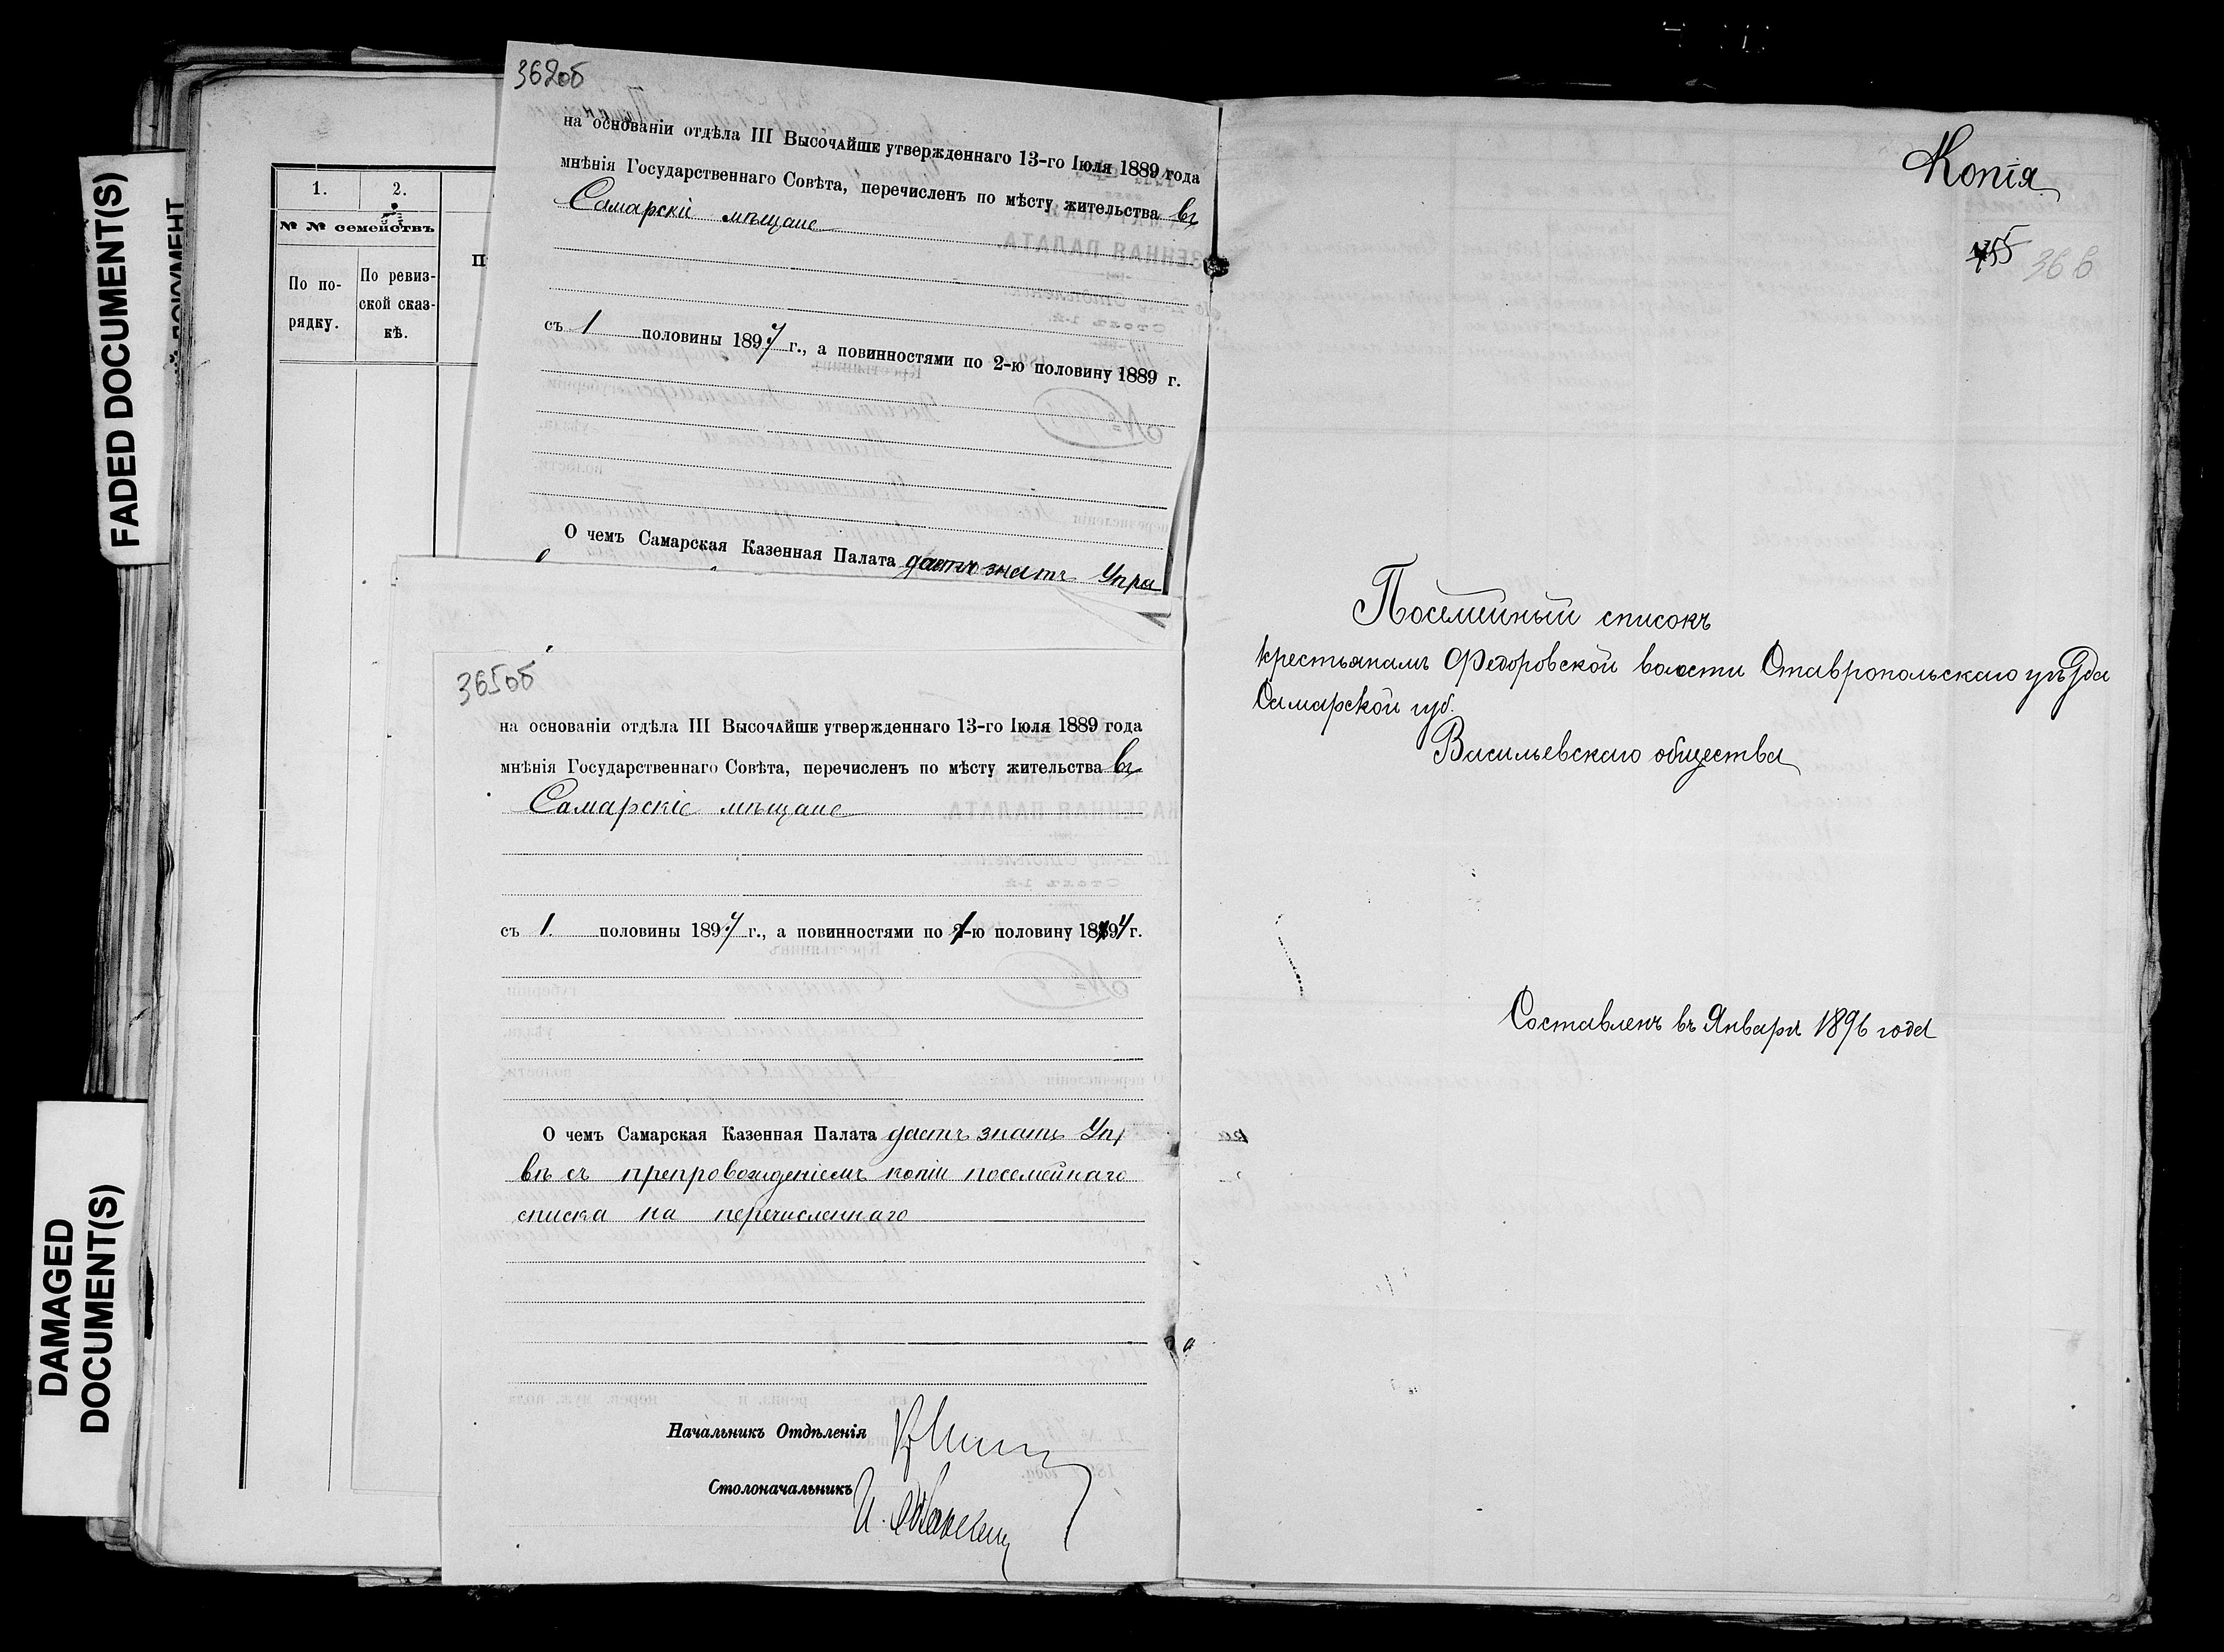 FADED DOCUMENT(S)
DAMAGED
DOCUMENT(S)
1.
2.
№ № семействъ
По по-
рядку.
По ревиз-
ской сказ-
кѣ.
362об
на основаніи отдѣла III Высочайше утвержденнаго 13-го Іюля 1889 года
мнѣнія Государственнаго Совѣта, перечисленъ по мѣсту жительства въ
Самарскіе мѣщане
съ 1 половины 1897 г., а повинностями по 2-ю половину 1889 г.
О чемъ Самарская Казенная Палата даетъ знать Упра
365об
на основаніи отдѣла III Высочайше утвержденнаго 13-го Іюля 1889 года
мнѣнія Государственнаго Совѣта, перечисленъ по мѣсту жительства въ
Самарскіе мѣщане
съ 1. половины 1897 г., а повинностями по 1-ю половину 1897 г.
О чемъ Самарская Казенная Палата даетъ знать Упр
вѣ съ препровожденіемъ копіи посемейнаго
списка на перечисленнаго
Начальникъ Отдѣленія
Столоначальникъ
Копія
366
Посемейный списокъ
крестьянамъ Федоровской волости Ставропольскаго уѣзда
Самарской губ.
Васильевскаго общества
Составленъ въ Январѣ 1896 года